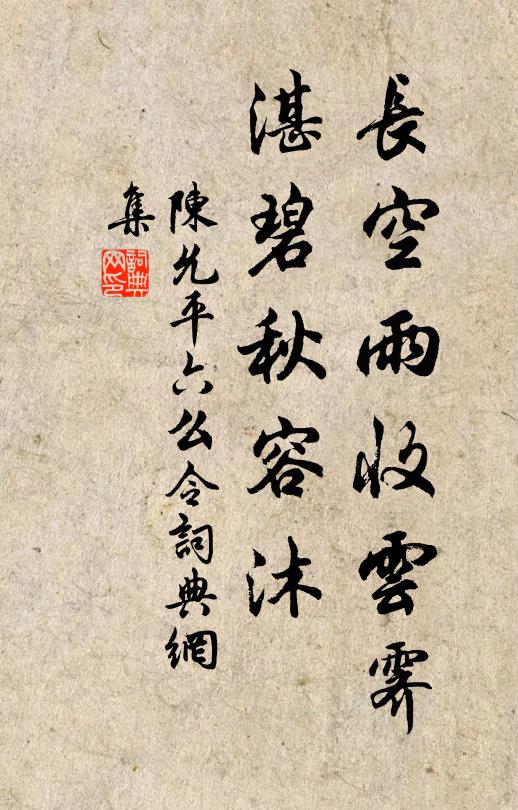 長空雨收雲霽
湛碧秋容沐
陳允平六么令詞典網
集
詞典網印